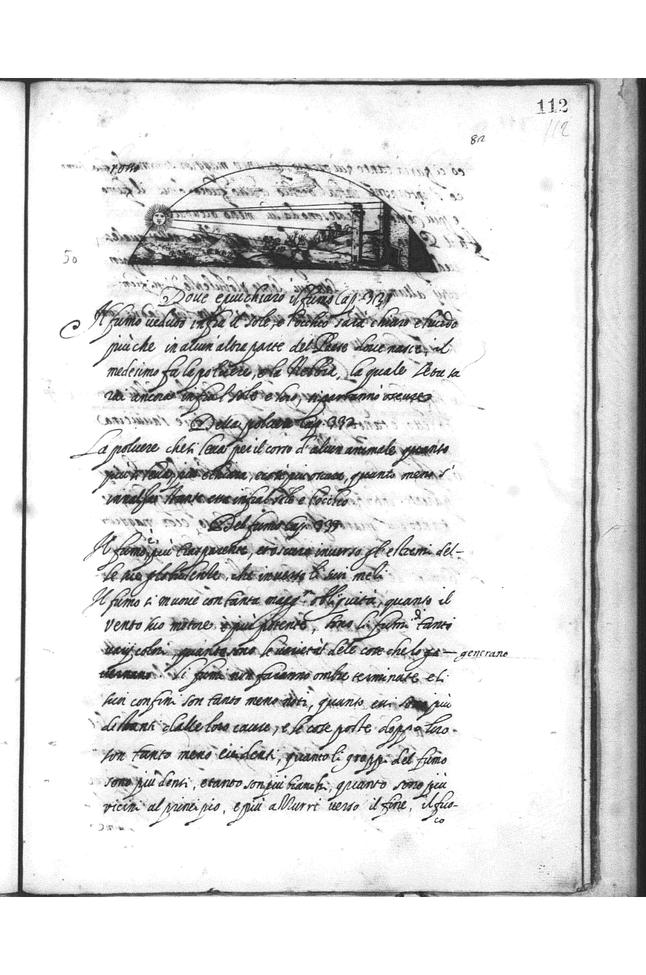 112
112
82
50
Doue è piu chiaro il fumo Cap. 331
Il fumo ueduto infra il sole, e l'occhio sarà chiaro e lucido
piu che in alcun altra parte del Paese doue nasce, il
medesimo fa la poluere, e la Nebbia, la quale se tu sa
rai ancora infra l'sole e loro, ti parranno oscure
Della poluere Cap. 332
La poluere che si leua per il corso d'alcun animale quanto
piu si leua, piu è chiara, e cosi piu oscura, quanto meno s'
innalza stante essa infra l sole e l'occhio
Del fumo Cap. 333
Il fumo è piu trasparente, et oscuro inuerso gli estremi del-
le sue globulentie, che inuerso li suoi meli
Il fumo si muoue con tanta magg.r obliquità, quanto il
vento suo motore è piu potente, sono li fumi di tanti
uarij colori quante sono le uarietà dele cose che lo ge- generano
nerano li fumi non faranno ombre terminate e li
suoi confini son tanto meno noti, quanto essi sono piu
distanti dalle loro cause, e le cose poste doppo loro
son tanto meno euidenti, quanto li groppi del fumo
sono piu densi, e tanto son piu bianchi, quanto sono piu
vicini al principio, e piu azzurri verso il fine, il fuo-
co